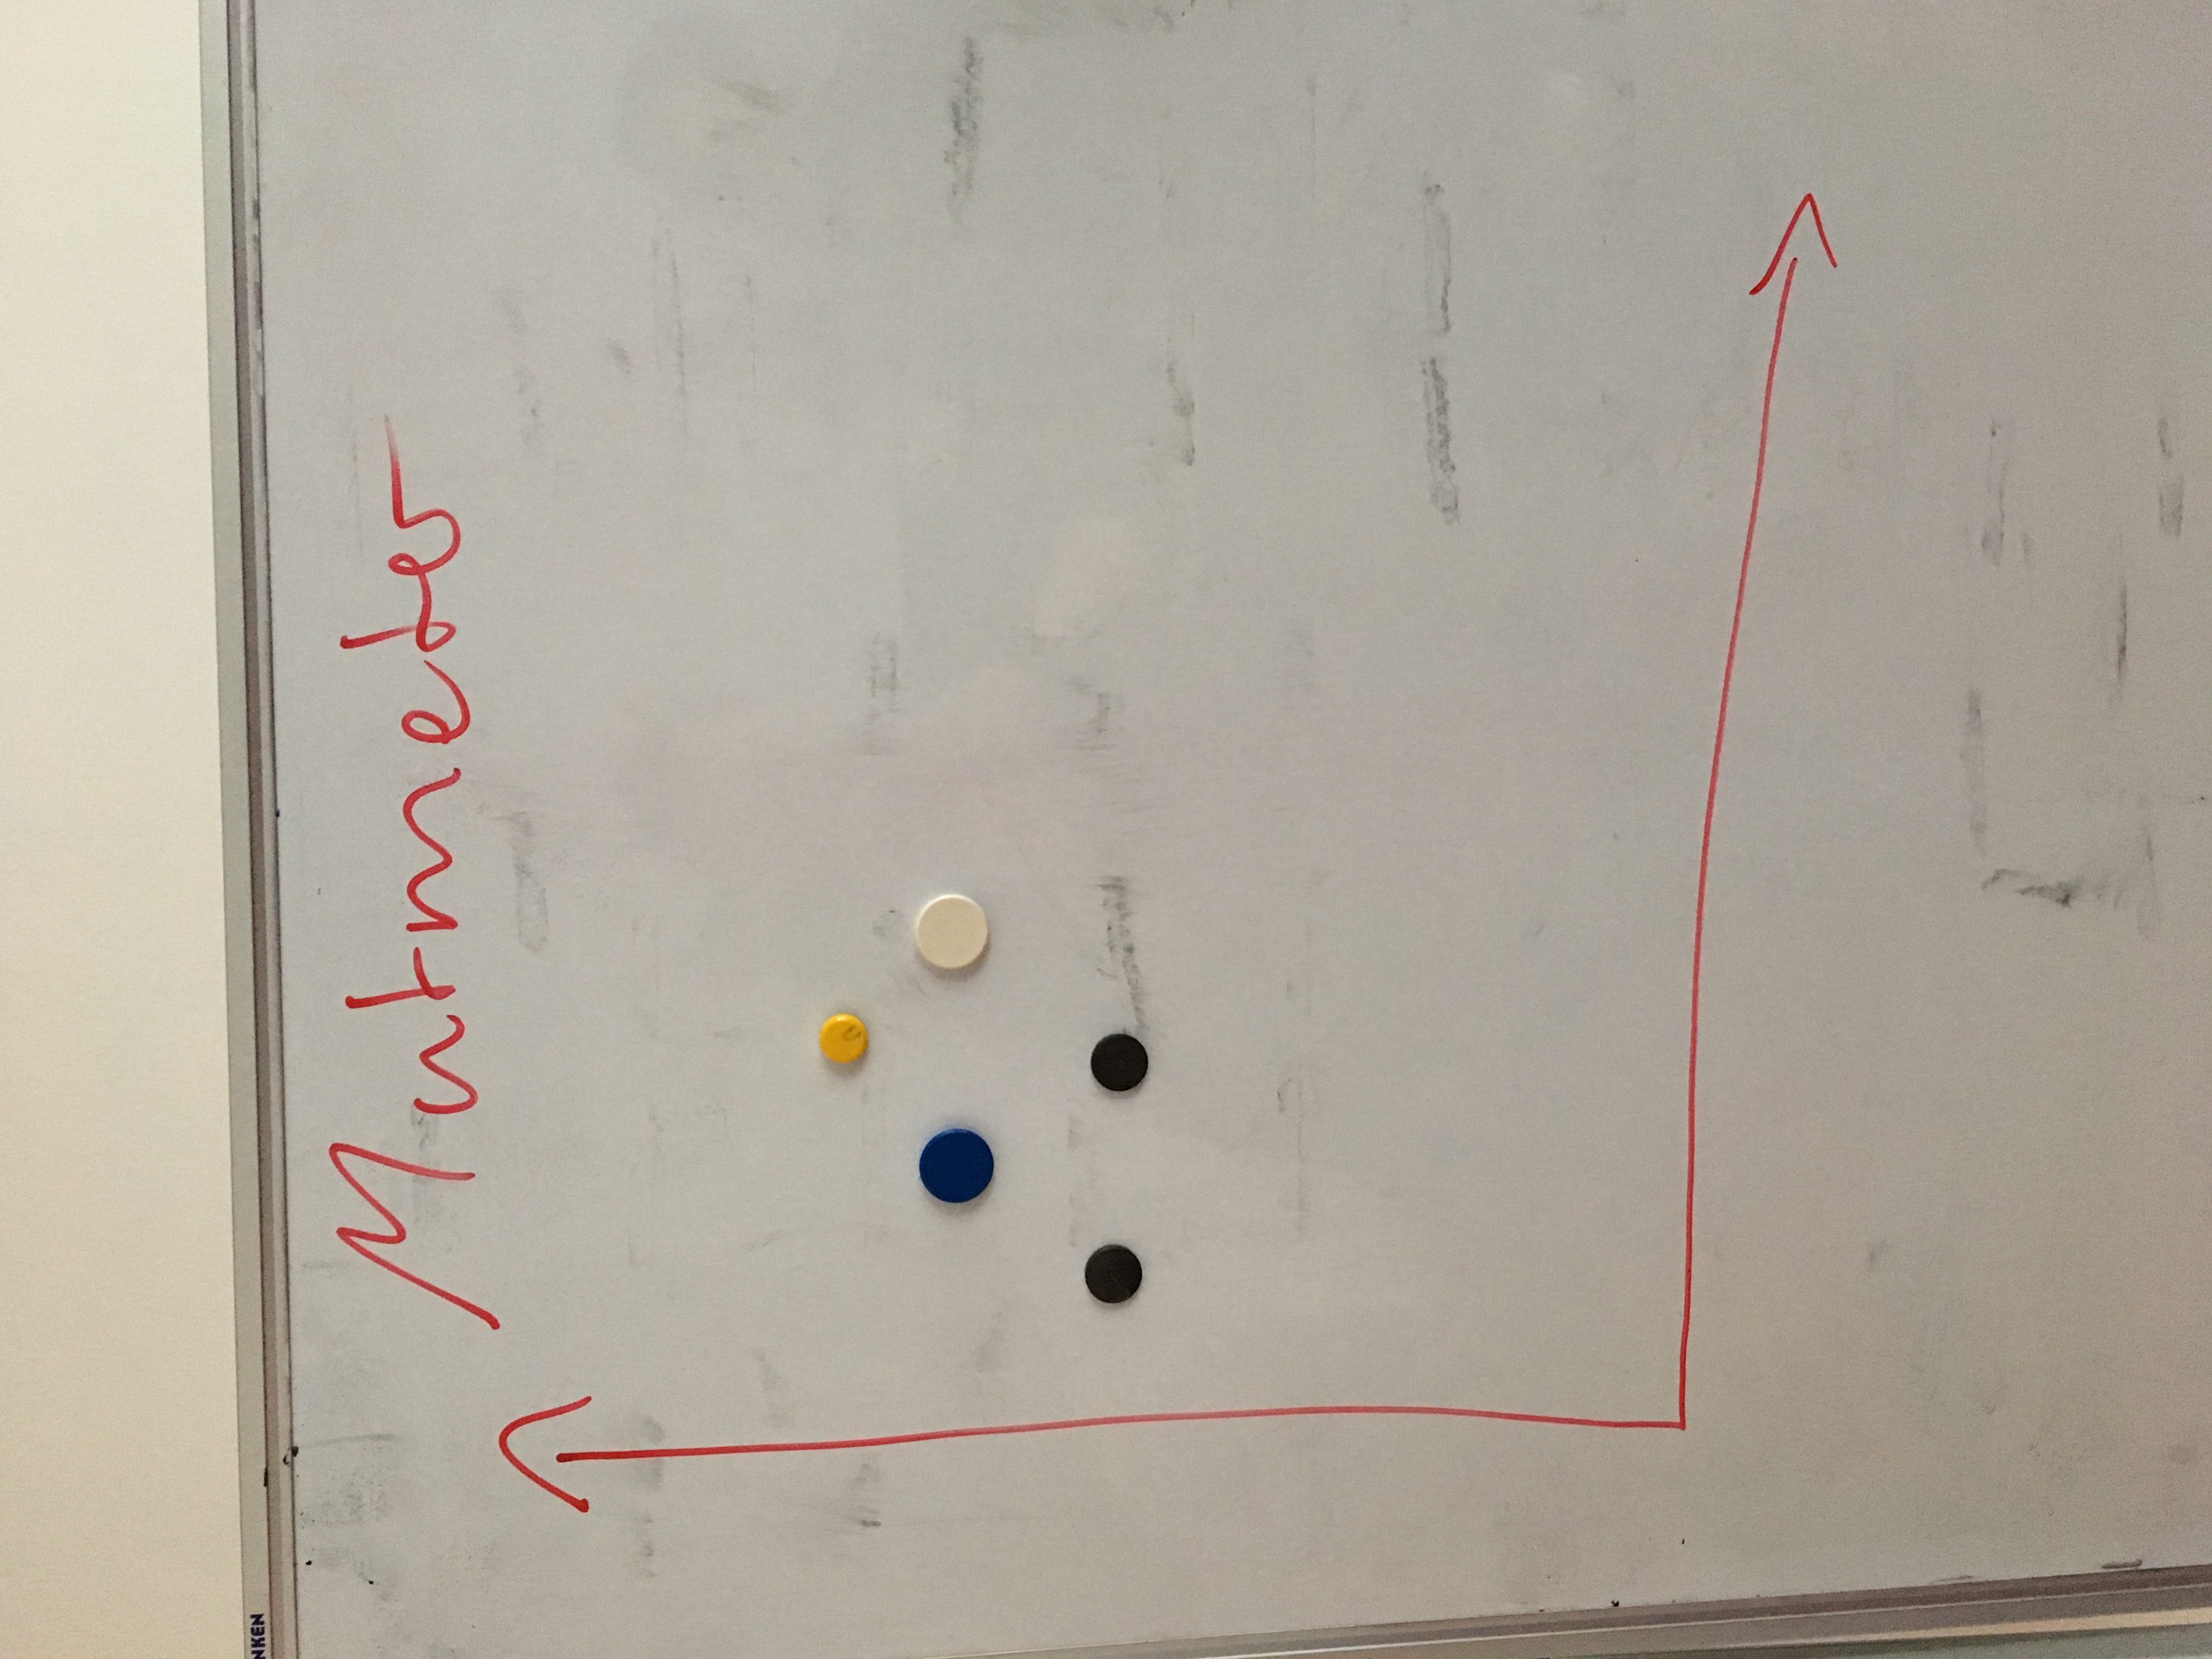 NKEN
Mutmeter